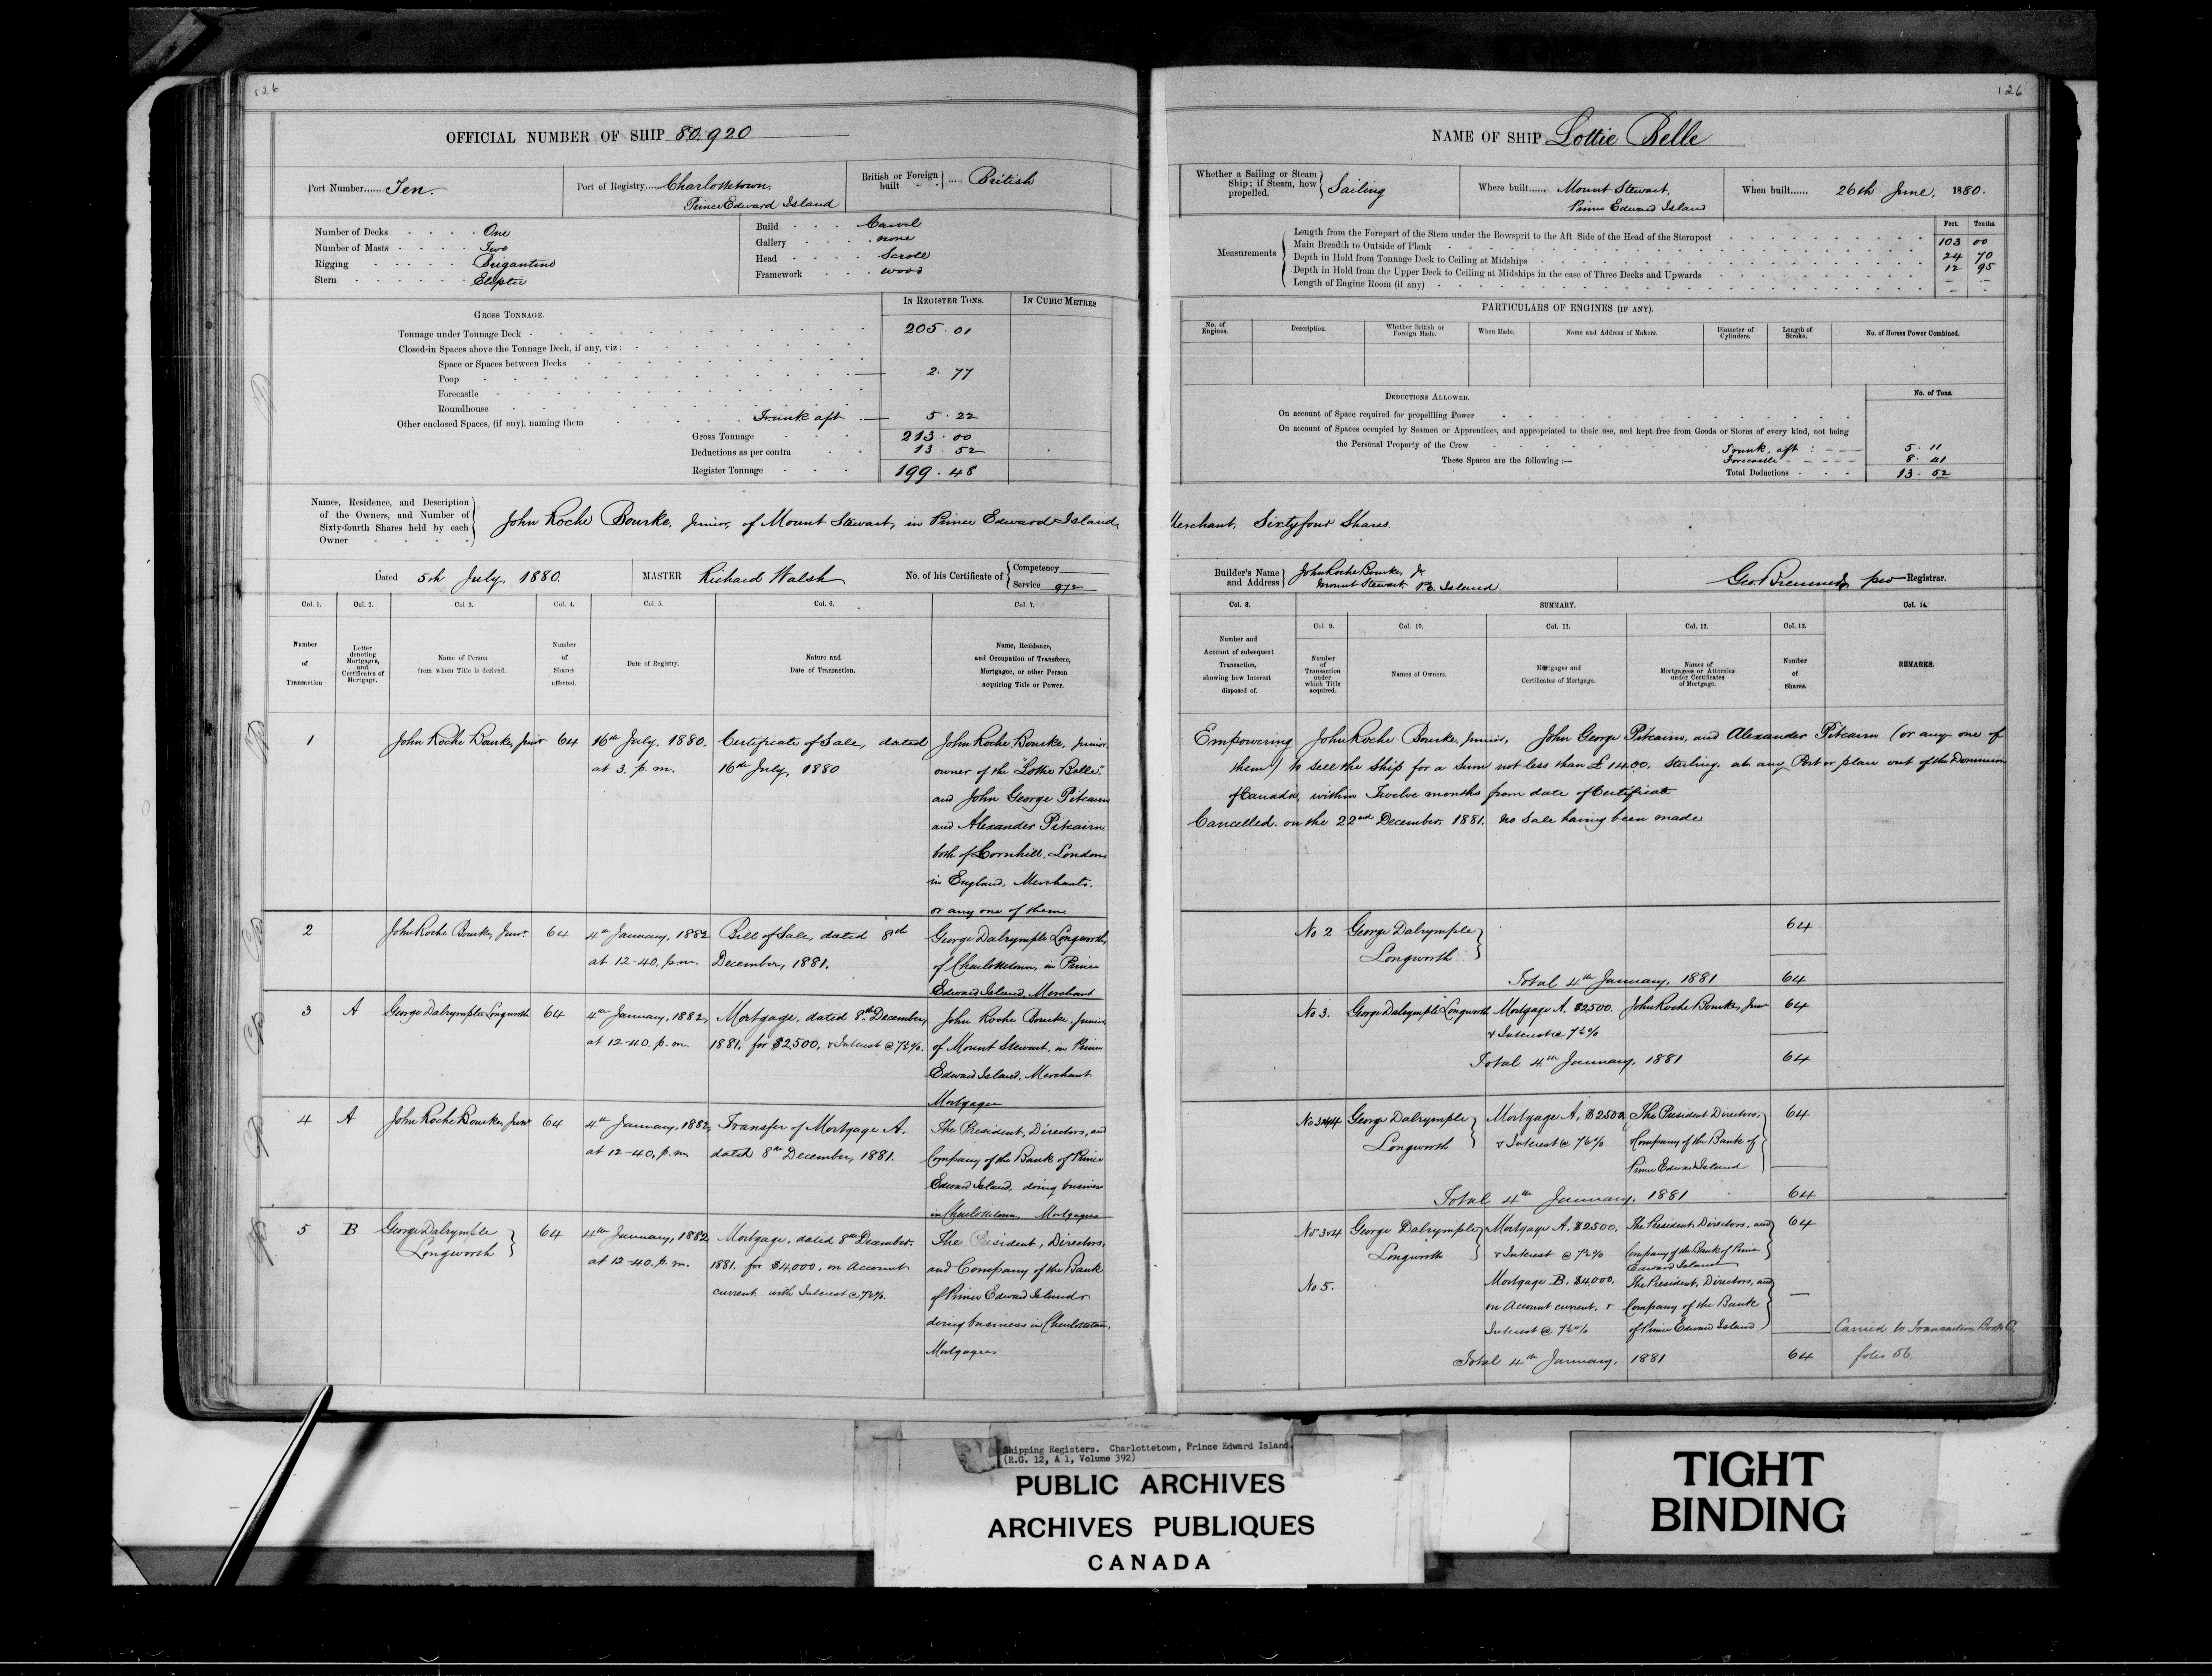 126
OFFICIAL NUMBER OF SHIP 80.920
Port Number...... Ten.
Port of Registry..... Charlottetown,
Prince Edward Island
British or Foreign built } .... British
Number of Decks One
Number of Masts Two
Rigging Brigantine
Stern Eliptic
Build Carvel
Gallery none
Head Scroll
Framework Wood
IN REGISTER TONS. IN CUBIC METRES
GROSS TONNAGE.
Tonnage under Tonnage Deck 205.01
Closed-in Spaces above the Tonnage Deck, if any, viz:
Space or Spaces between Decks
Poop 2.77
Forecastle
Roundhouse
Other enclosed Spaces, (if any), naming them Trunk aft 5.22
Gross Tonnage 213.00
Deductions as per contra 13.52
Register Tonnage 199.48
Names, Residence, and Description
of the Owners, and Number of
Sixty-fourth Shares held by each
Owner
John Roche Bourke, Junior, of Mount Stewart, in Prince Edward Island,
Dated 5th July, 1880. MASTER Richard Walsh No. of his Certificate of { Competency
Service 972
Col. 1. Col. 2. Col. 3. Col. 4. Col. 5. Col. 6. Col. 7.
Number of Transaction
Letter denoting Mortgages, and Certificates of Mortgage.
Name of Person from whom Title is derived.
Number of Shares affected.
Date of Registry.
Nature and Date of Transaction.
Name, Residence, and Occupation of Transferee, Mortgagee, or other Person acquiring Title or Power.
1 John Roche Bourke, Junr 64 16th July, 1880. Certificate of Sale, dated John Roche Bourke, Junior,
at 3. p.m. 16th July, 1880 owner of the "Lottie Belle".
and John George Pitcairn
and Alexander Pitcairn
both of Cornhill, London,
in England, Merchants.
or any one of them
2 John Roche Bourke, Junr. 64 4th January, 1882 Bill of Sale, dated 8th George Dalrymple Longworth,
at 12-40. p.m. December, 1881. of Charlottetown, in Prince
Edward Island, Merchant
3 A George Dalrymple Longworth 64 4th January, 1882, Mortgage, dated 8th December, John Roche Bourke, Junior,
at 12-40. p.m. 1881, for $2,500, & Interest @ 7½%. of Mount Stewart, in Prince
Edward Island, Merchant.
Mortgagee
4 A John Roche Bourke, Junr 64 4th January, 1882, Transfer of Mortgage A. The President, Directors, and
at 12-40, p.m. dated 8th December, 1881. Company of the Bank of Prince
Edward Island, doing business
in Charlottetown, Mortgagees
5 B George Dalrymple Longworth } 64 4th January, 1882 Mortgage, dated 8th December. The President, Directors,
at 12-40. p.m. 1881. for $4,000, on Account and Company of the Bank
current, with Interest @ 7½%. of Prince Edward Island
doing business in Charlottetown,
Mortgagees
126
NAME OF SHIP Lottie Belle
Whether a Sailing or Steam Ship; if Steam, how propelled. } Sailing
Where built...... Mount Stewart,
Prince Edward Island
When built...... 26th June, 1880.
Feet. Tenths.
Measurements
Length from the Forepart of the Stem under the Bowsprit to the Aft Side of the Head of the Sternpost 103 00
Main Breadth to Outside of Plank 24 70
Depth in Hold from Tonnage Deck to Ceiling at Midships 12 95
Depth in Hold from the Upper Deck to Ceiling at Midships in the case of Three Decks and Upwards - -
Length of Engine Room (if any) - -
PARTICULARS OF ENGINES (IF ANY).
No. of Engines. Description. Whether British or Foreign Made. When Made. Name and Address of Makers. Diameter of Cylinders. Length of Stroke. No. of Horses Power Combined.
DEDUCTIONS ALLOWED. No. of Tons.
On account of Space required for propelling Power
On account of Spaces occupied by Seamen or Apprentices, and appropriated to their use, and kept free from Goods or Stores of every kind, not being
the Personal Property of the Crew Trunk, aft 5.11
These Spaces are the following:— Forecastle 8.41
Total Deductions 13.52
Merchant, Sixtyfour Shares.
Builder's Name and Address } John Roche Bourke, Jr
Mount Stewart, P.E. Island.
Registrar.
Col. 8. SUMMARY. Col. 14.
Col. 9. Col. 10. Col. 11. Col. 12. Col. 13.
Number and Account of subsequent Transaction, showing how Interest disposed of.
Number of Transaction under which Title acquired.
Names of Owners.
Mortgages and Certificates of Mortgage.
Names of Mortgagees or Attornies under Certificates of Mortgage.
Number of Shares.
REMARKS.
Empowering John Roche Bourke, Junior, John George Pitcairn, and Alexander Pitcairn (or any one of
them) to sell the Ship for a Sum not less than £1400. Sterling, at any Port or place out of the Dominion
of Canada, within Twelve months from date of Certificate
Cancelled on the 22nd December, 1881. no Sale having been made
No 2 George Dalrymple Longworth } 64
Total 4th January, 1881 64
No 3. George Dalrymple Longworth Mortgage A, $2500. John Roche Bourke, Junr 64
& Interest @ 7½%
Total 4th January, 1881 64
No 3&4 George Dalrymple Longworth } Mortgage A, $2500 The President Directors, 64
& Interest @ 7½% Company of the Bank of
Prince Edward Island
Total 4th January, 1881 64
No 3&4 George Dalrymple Longworth } Mortgage A. $2500, The President, Directors, and 64
& Interest @ 7½% Company of the Bank of Prince
Edward Island
No 5. Mortgage B. $4,000. The President, Directors, and —
on Account current, & Company of the Bank
Interest @ 7½% of Prince Edward Island
Carried to Transaction Book C,
Total 4th January, 1881 64 folio 56.
Shipping Registers. Charlottetown, Prince Edward Island.
(R.G. 12, A 1, Volume 392)
PUBLIC ARCHIVES
ARCHIVES PUBLIQUES
CANADA
TIGHT
BINDING